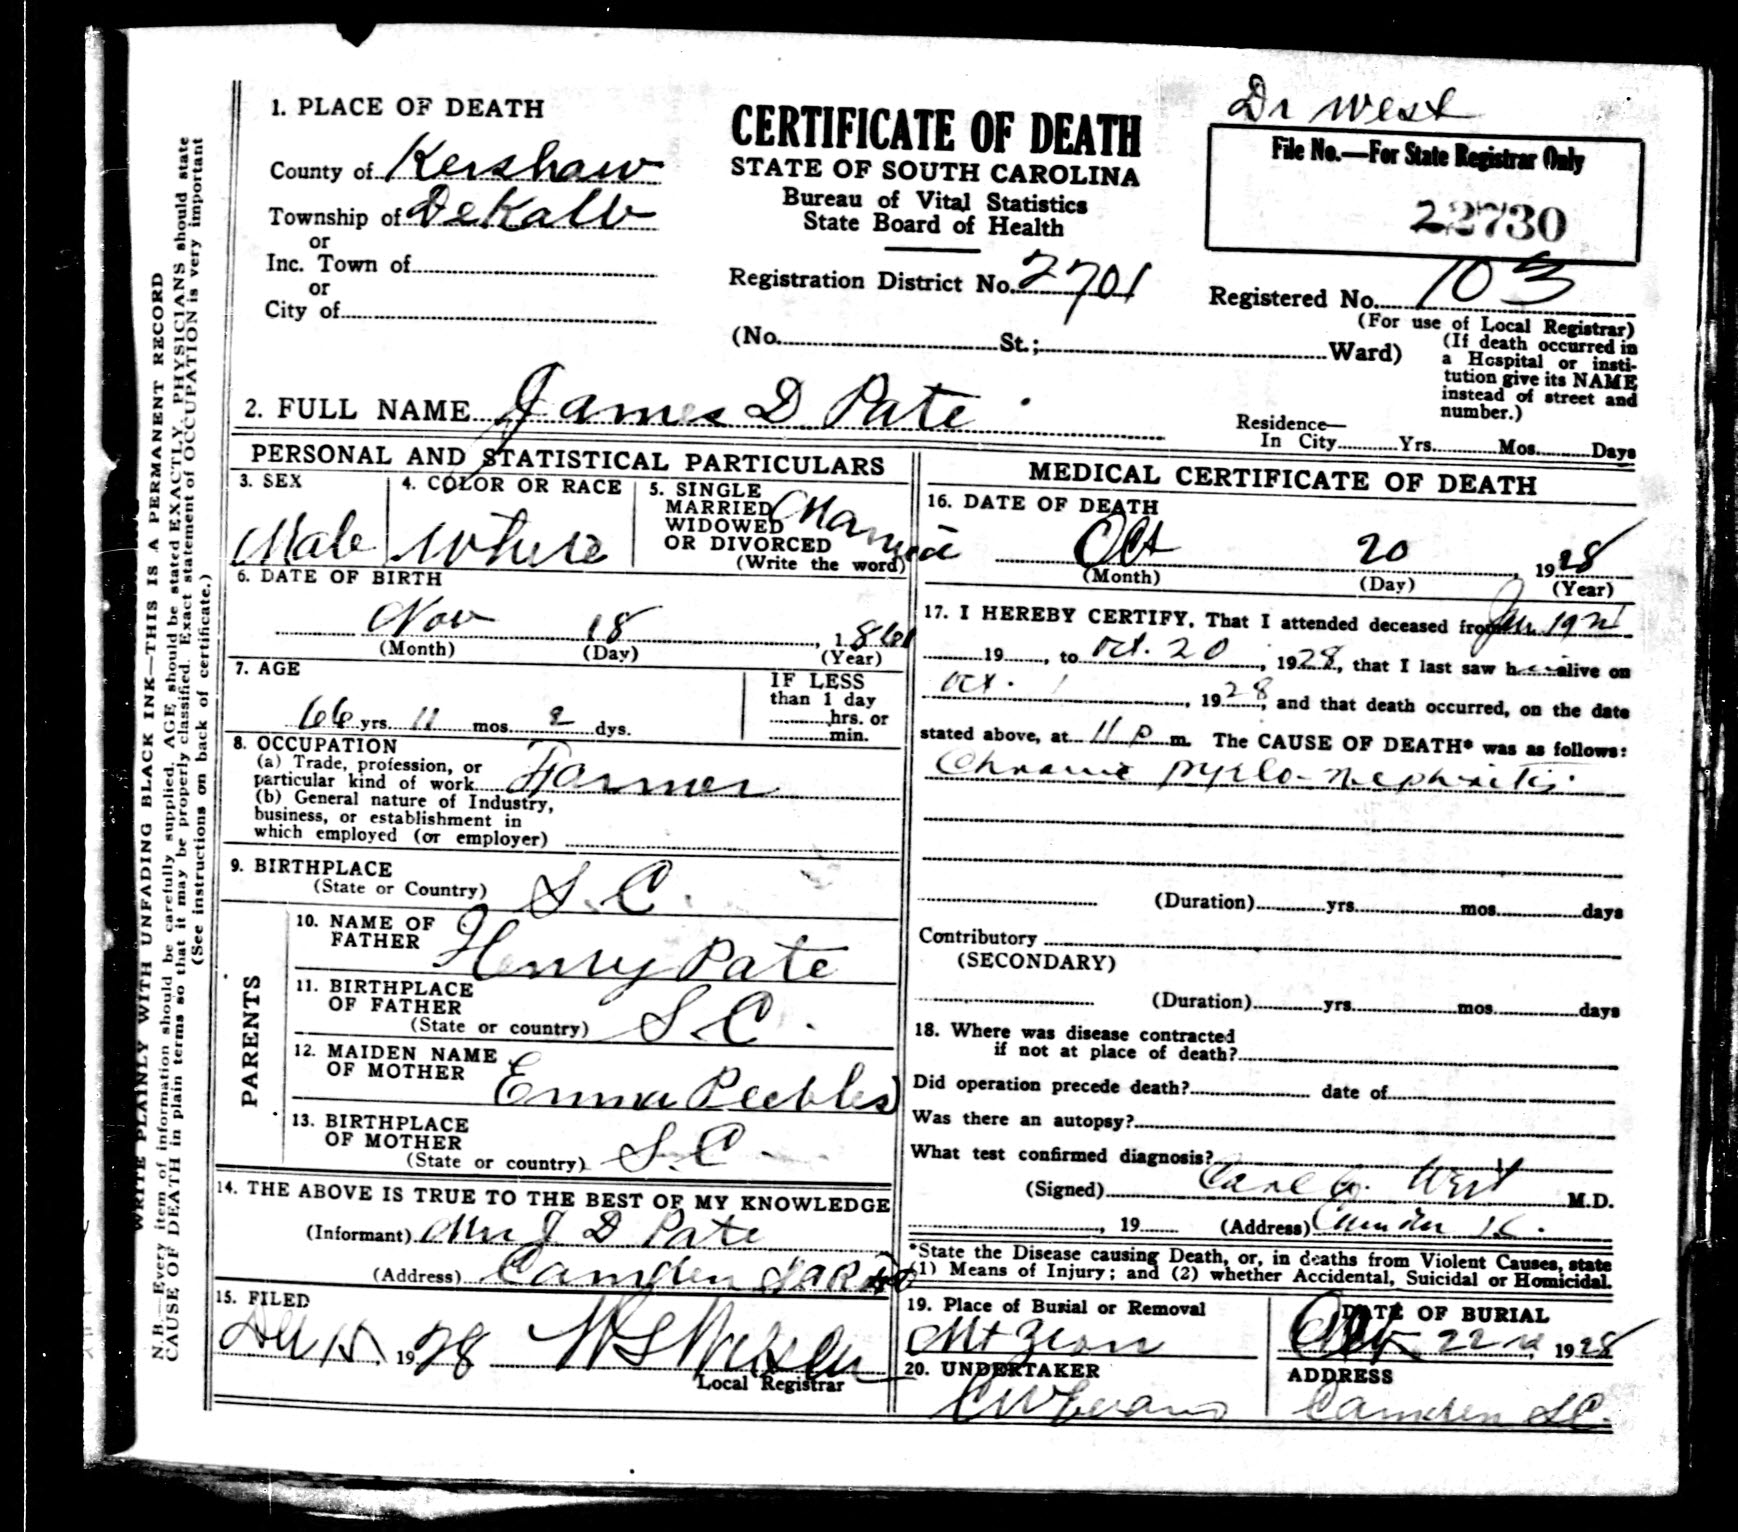 Dr West
1. PLACE OF DEATH
County of Kershaw
Township of DeKalb
or
Inc. Town of
or
City of
CERTIFICATE OF DEATH
STATE OF SOUTH CAROLINA
Bureau of Vital Statistics
State Board of Health
Registration District No. 2701
(No. St.; Ward)
File No.—For State Registrar Only
22730
Registered No. 103
(For use of Local Registrar)
(If death occurred in
a Hospital or insti-
tution give its NAME
instead of street and
number.)
2. FULL NAME James D Pate
Residence—
In City Yrs. Mos. Days
PERSONAL AND STATISTICAL PARTICULARS
3. SEX
Male
4. COLOR OR RACE
White
5. SINGLE
MARRIED
WIDOWED
OR DIVORCED
(Write the word)
Married
6. DATE OF BIRTH
Nov 18, 1861
(Month) (Day) (Year)
7. AGE
66 yrs. 11 mos. 2 dys.
IF LESS
than 1 day
hrs. or
min.
8. OCCUPATION
(a) Trade, profession, or
particular kind of work Farmer
(b) General nature of Industry,
business, or establishment in
which employed (or employer)
9. BIRTHPLACE
(State or Country) S.C.
PARENTS
10. NAME OF
FATHER Henry Pate
11. BIRTHPLACE
OF FATHER
(State or country) S.C.
12. MAIDEN NAME
OF MOTHER Emma Peebles
13. BIRTHPLACE
OF MOTHER
(State or country) S.C.
14. THE ABOVE IS TRUE TO THE BEST OF MY KNOWLEDGE
(Informant) Mrs J D Pate
(Address) Camden
15. FILED
15, 1928
Local Registrar
MEDICAL CERTIFICATE OF DEATH
16. DATE OF DEATH
Oct 20, 1928
(Month) (Day) (Year)
17. I HEREBY CERTIFY, That I attended deceased from Jan
19, to Oct. 20, 1928, that I last saw h alive on
Oct. 1, 1928, and that death occurred, on the date
stated above, at 11 p m. The CAUSE OF DEATH* was as follows:
Chronic pyelo-nephritis.
(Duration) yrs. mos. days
Contributory
(SECONDARY)
(Duration) yrs. mos. days
18. Where was disease contracted
if not at place of death?
Did operation precede death? date of
Was there an autopsy?
What test confirmed diagnosis?
(Signed) West M.D.
, 19 (Address) Camden S.C.
*State the Disease causing Death, or, in deaths from Violent Causes, state
(1) Means of Injury; and (2) whether Accidental, Suicidal or Homicidal.
19. Place of Burial or Removal
Mt Zion
DATE OF BURIAL
Oct 22nd 1928
20. UNDERTAKER
C W Evans
ADDRESS
Camden S.C.
WRITE PLANLY WITH UNFADING BLACK INK—THIS IS A PERMANENT RECORD
N. B.—Every item of information should be carefully supplied. AGE should be stated EXACTLY. PHYSICIANS should state
CAUSE OF DEATH in plain terms so that it may be properly classified. Exact statement of OCCUPATION is very important
(See instructions on back of certificate.)